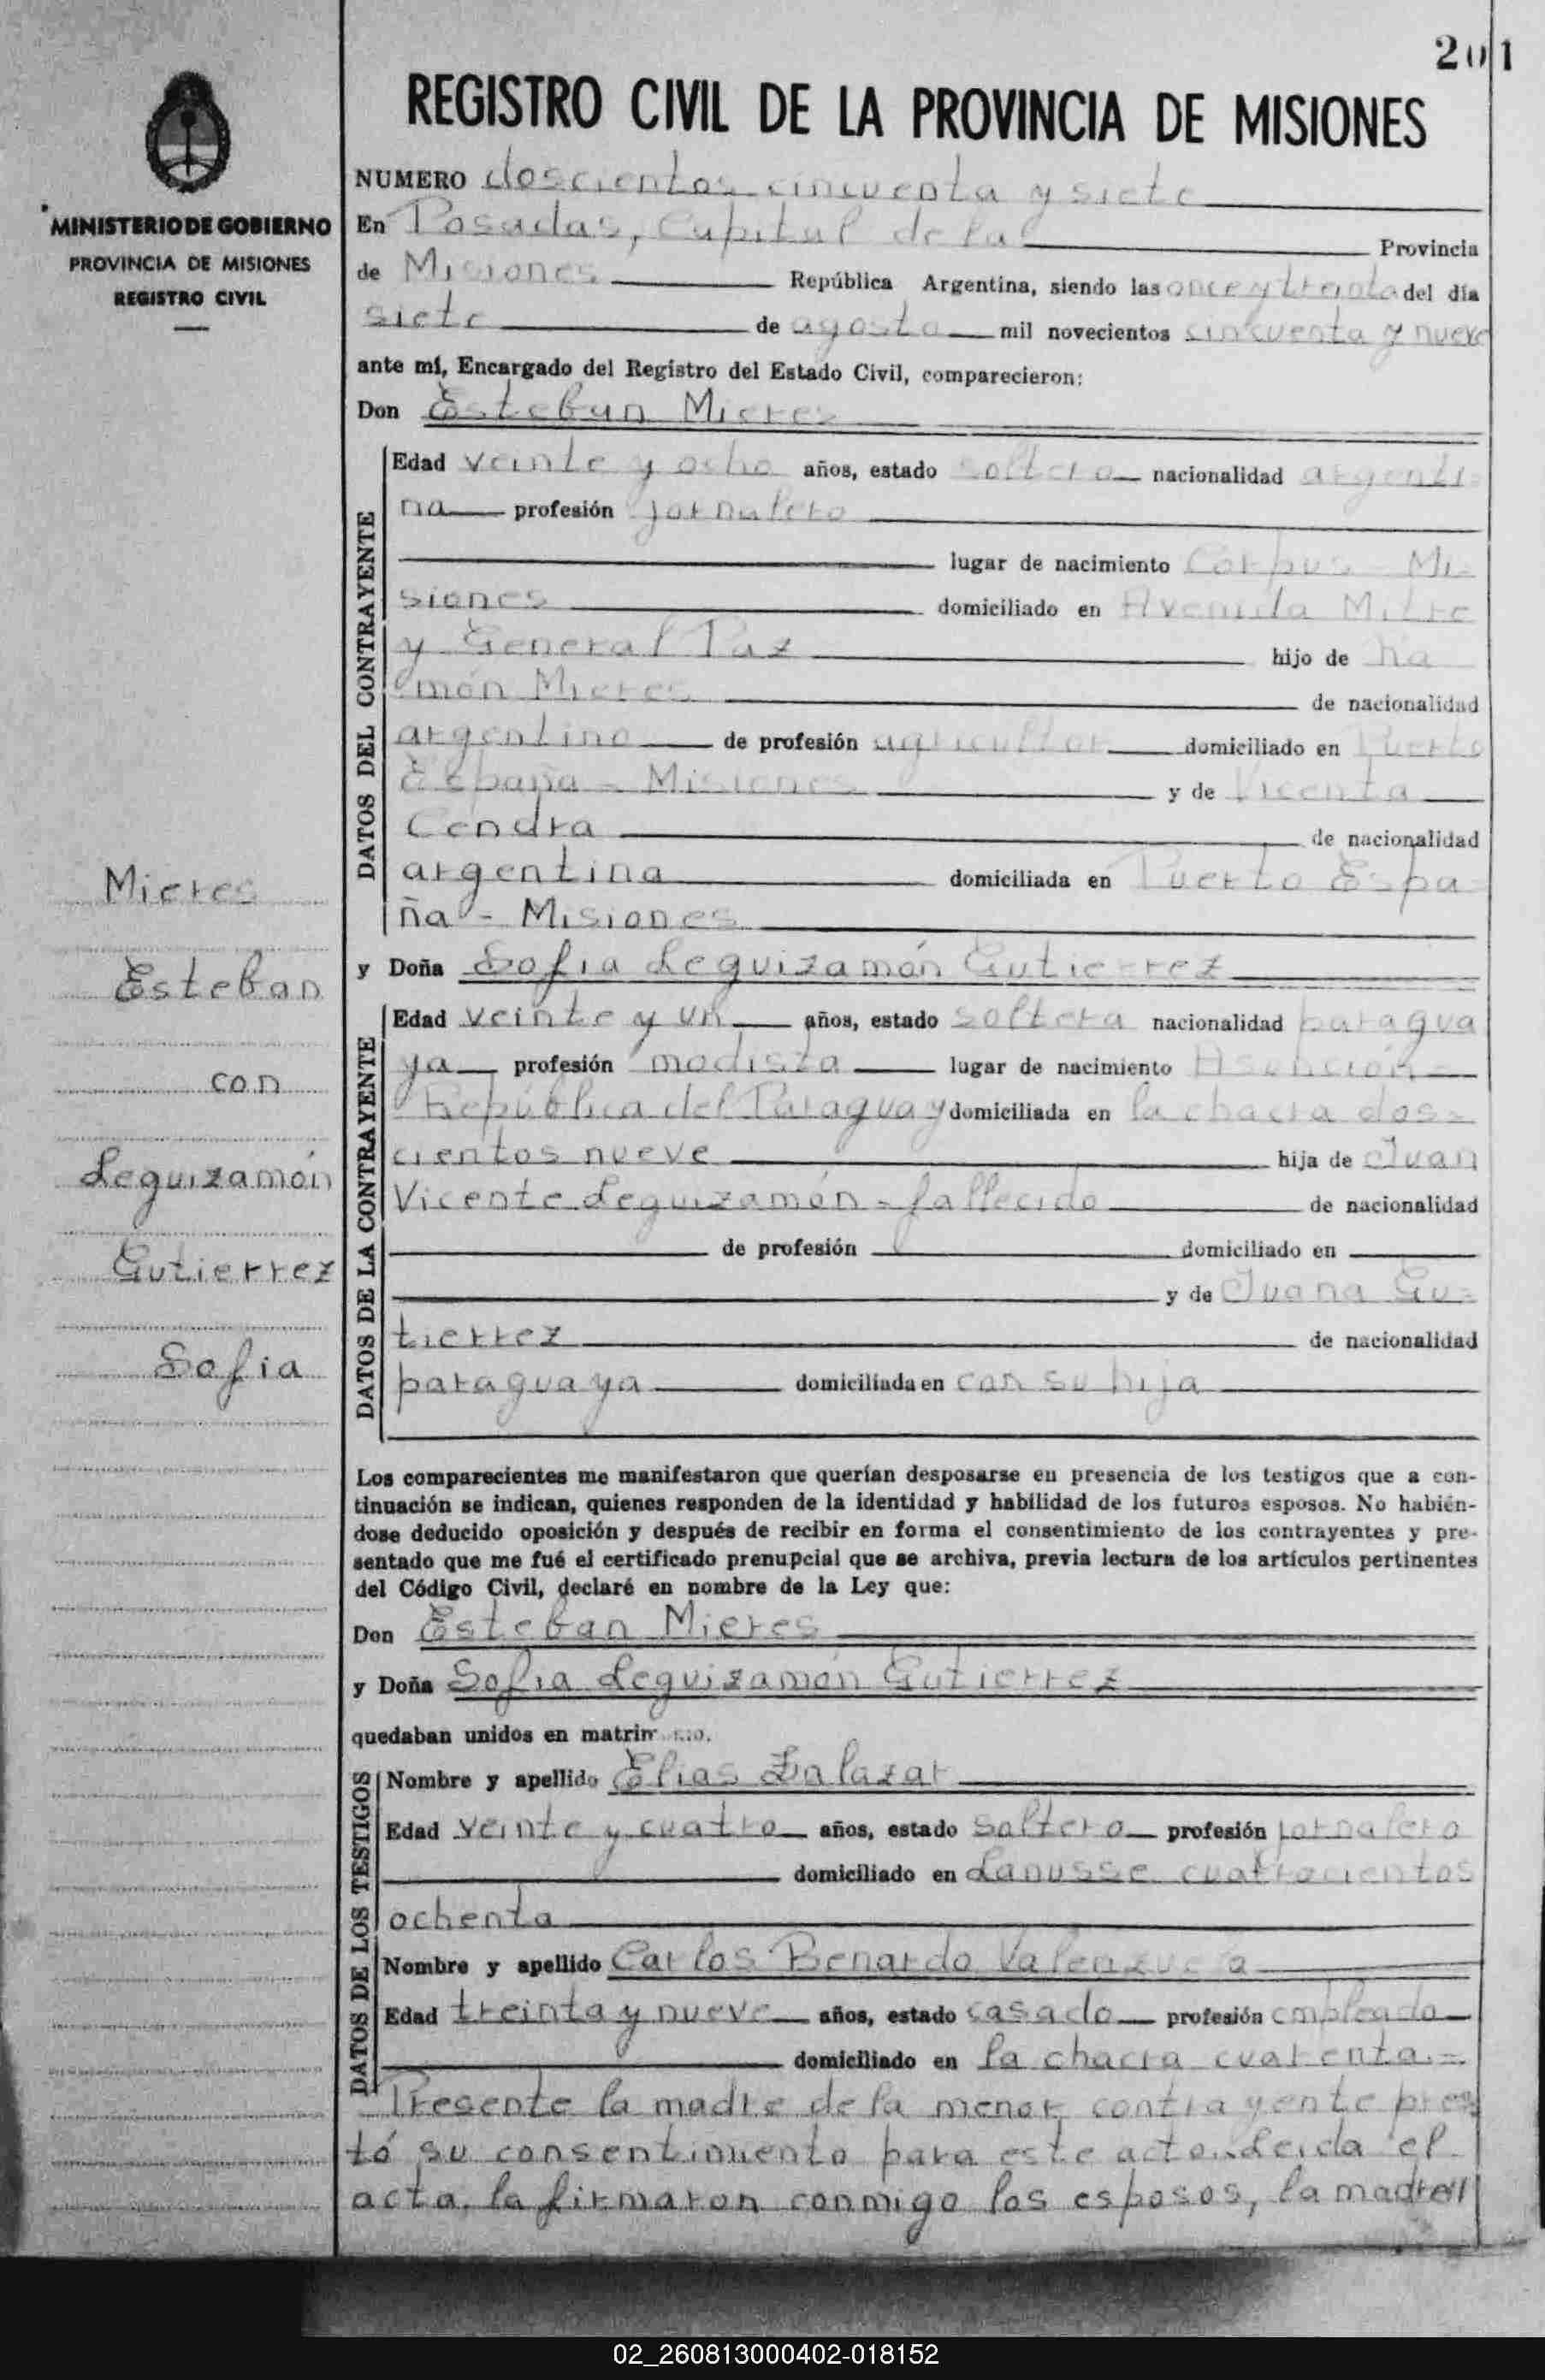 201
REGISTRO CIVIL DE LA PROVINCIA DE MISIONES
MINISTERIO DE GOBIERNO
PROVINCIA DE MISIONES
REGISTRO CIVIL
NUMERO doscientos cincuenta y siete
En Posadas, Capital de la Provincia
de Misiones República Argentina, siendo las once y treinta del día
siete de agosto mil novecientos cincuenta y nueve
ante mí, Encargado del Registro del Estado Civil, comparecieron:
Don Esteban Mieres
DATOS DEL CONTRAYENTE
Edad veinte y ocho años, estado soltero nacionalidad argenti-
na profesión jornalero
lugar de nacimiento Corpus - Mi-
siones domiciliado en Avenida Mitre
y General Paz hijo de Ra
món Mieres de nacionalidad
argentino de profesión agricultor domiciliado en Puerto
España - Misiones y de Vicenta
Cendra de nacionalidad
argentina domiciliada en Puerto Espa
ña - Misiones
y Doña Sofia Leguizamón Gutierrez
DATOS DE LA CONTRAYENTE
Edad veinte y un años, estado soltera nacionalidad paragua
ya profesión modista lugar de nacimiento Asunción -
República del Paraguay domiciliada en la chacra dos=
cientos nueve hija de Juan
Vicente Leguizamón - fallecido de nacionalidad
de profesión domiciliado en
y de Juana Gu=
tierrez de nacionalidad
paraguaya domiciliada en con su hija
Mieres
Esteban
con
Leguizamón
Gutierrez
Sofia
Los comparecientes me manifestaron que querían desposarse en presencia de los testigos que a con-
tinuación se indican, quienes responden de la identidad y habilidad de los futuros esposos. No habién-
dose deducido oposición y después de recibir en forma el consentimiento de los contrayentes y pre-
sentado que me fué el certificado prenupcial que se archiva, previa lectura de los artículos pertinentes
del Código Civil, declaré en nombre de la Ley que:
Don Esteban Mieres
y Doña Sofia Leguizamón Gutierrez
quedaban unidos en matrimonio.
DATOS DE LOS TESTIGOS
Nombre y apellido Elias Zalazar
Edad veinte y cuatro años, estado soltero profesión jornalero
domiciliado en Lanusse cuatrocientos
ochenta
Nombre y apellido Carlos Benardo Valenzuela
Edad treinta y nueve años, estado casado profesión empleado
domiciliado en la chacra cuarenta.=
Presente la madre de la menor contrayente pres
tó su consentimiento para este acto. Leida el
acta, la firmaron conmigo los esposos, la madre//
02_260813000402-018152